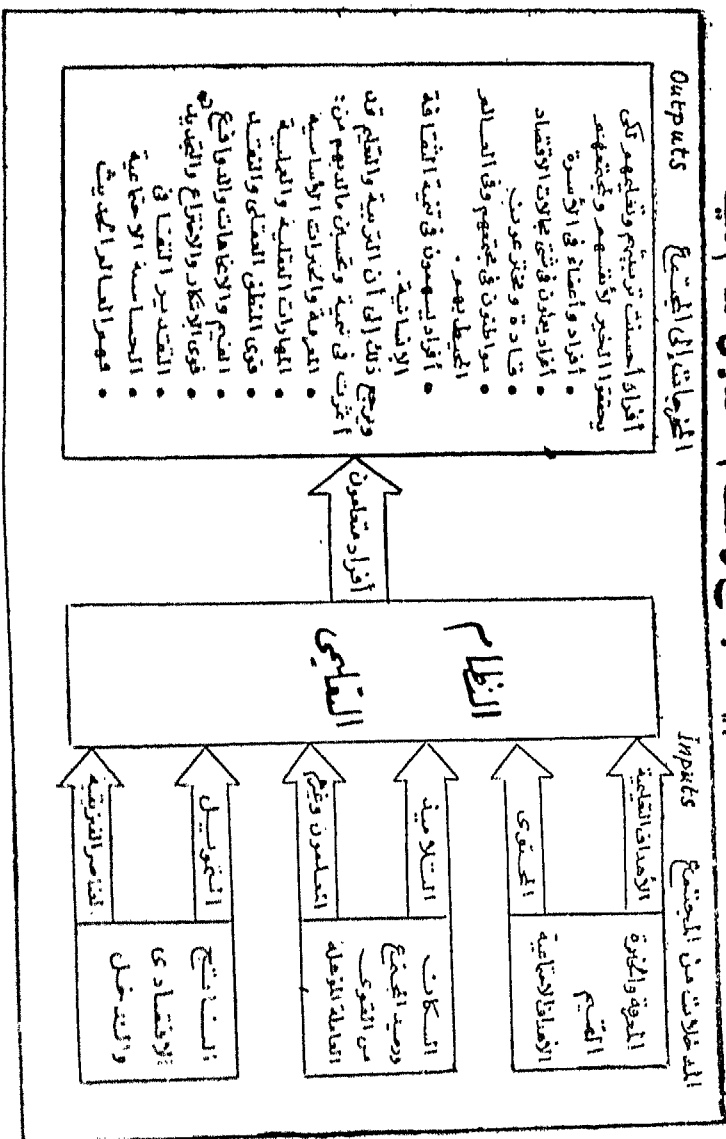 المدخلات من المجتمع Inputs
المعرفة والخبرة
القيم
الأهداف الاجتماعية
السكان
ورصيد المجتمع
من القوى
العاملة المؤهلة
الناتج
الاقتصادى
والتدخل
الأهداف التعليمية
المحتوى
التلاميذ
المعلمون وغيرهم
التمويل
العناصر الفيزيقية
النظام
التعليمى
أفراد متعلمون
المخرجات إلى المجتمع Outputs
أفراد أحسنت تربيتهم وتعليمهم لكى
يحققوا الخير لأنفسهم ومجتمعهم
• أفراد وأعضاء فى الأسرة
• أفراد يعملون فى شتى مجالات الاقتصاد
• قادة ومخترعون.
• مواطنون فى مجتمعهم وفى العالم
المحيط بهم.
• أفراد يسهمون فى تنمية الثقافة
الإنسانية.
ويرجع ذلك إلى أن التربية والتعليم قد
أثرت فى تنمية وتحسين ما لديهم من:
• المعرفة والخبرات الأساسية
• المهارات العقلية والعملية
• قوى المنطق العقلى والنقد
• القيم والاتجاهات والدوافع
• قوى الابتكار والاختراع والتجديد
• التقدير الثقافى
• الحساسية الاجتماعية
• فهم العالم الحديث